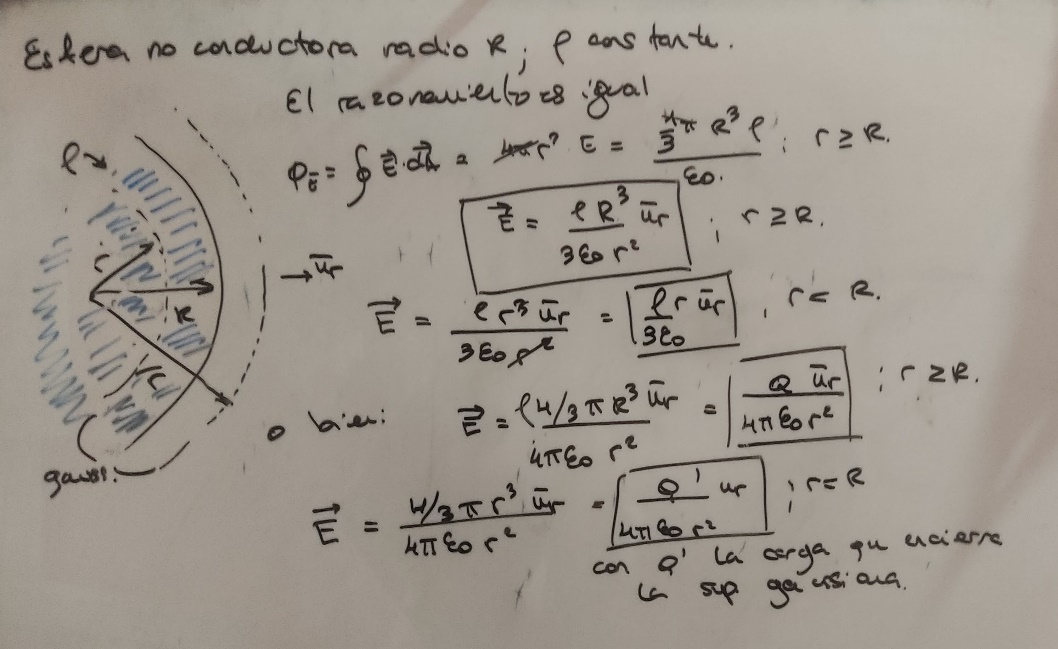 Esfera no conductora radio R; ρ constante.
El razonamiento es igual
ρ
φ_E = ∮ E⃗·dA⃗ = 4πr² E = 4/3 π R³ ρ / ε₀ ; r ≥ R.
E⃗ = ρ R³ ūr / 3ε₀ r² ; r ≥ R.
→ ūr
r
R
E⃗ = ρ r³ ūr / 3ε₀ r² = ρ r ūr / 3ε₀ , r < R.
r
o bien: E⃗ = ρ 4/3 π R³ ūr / 4πε₀ r² = Q ūr / 4πε₀ r² ; r ≥ R.
gauss.
E⃗ = 4/3 π r³ ūr / 4πε₀ r² = Q' ur / 4πε₀ r² ; r = R
con Q' la carga que encierra
la sup gaussiana.